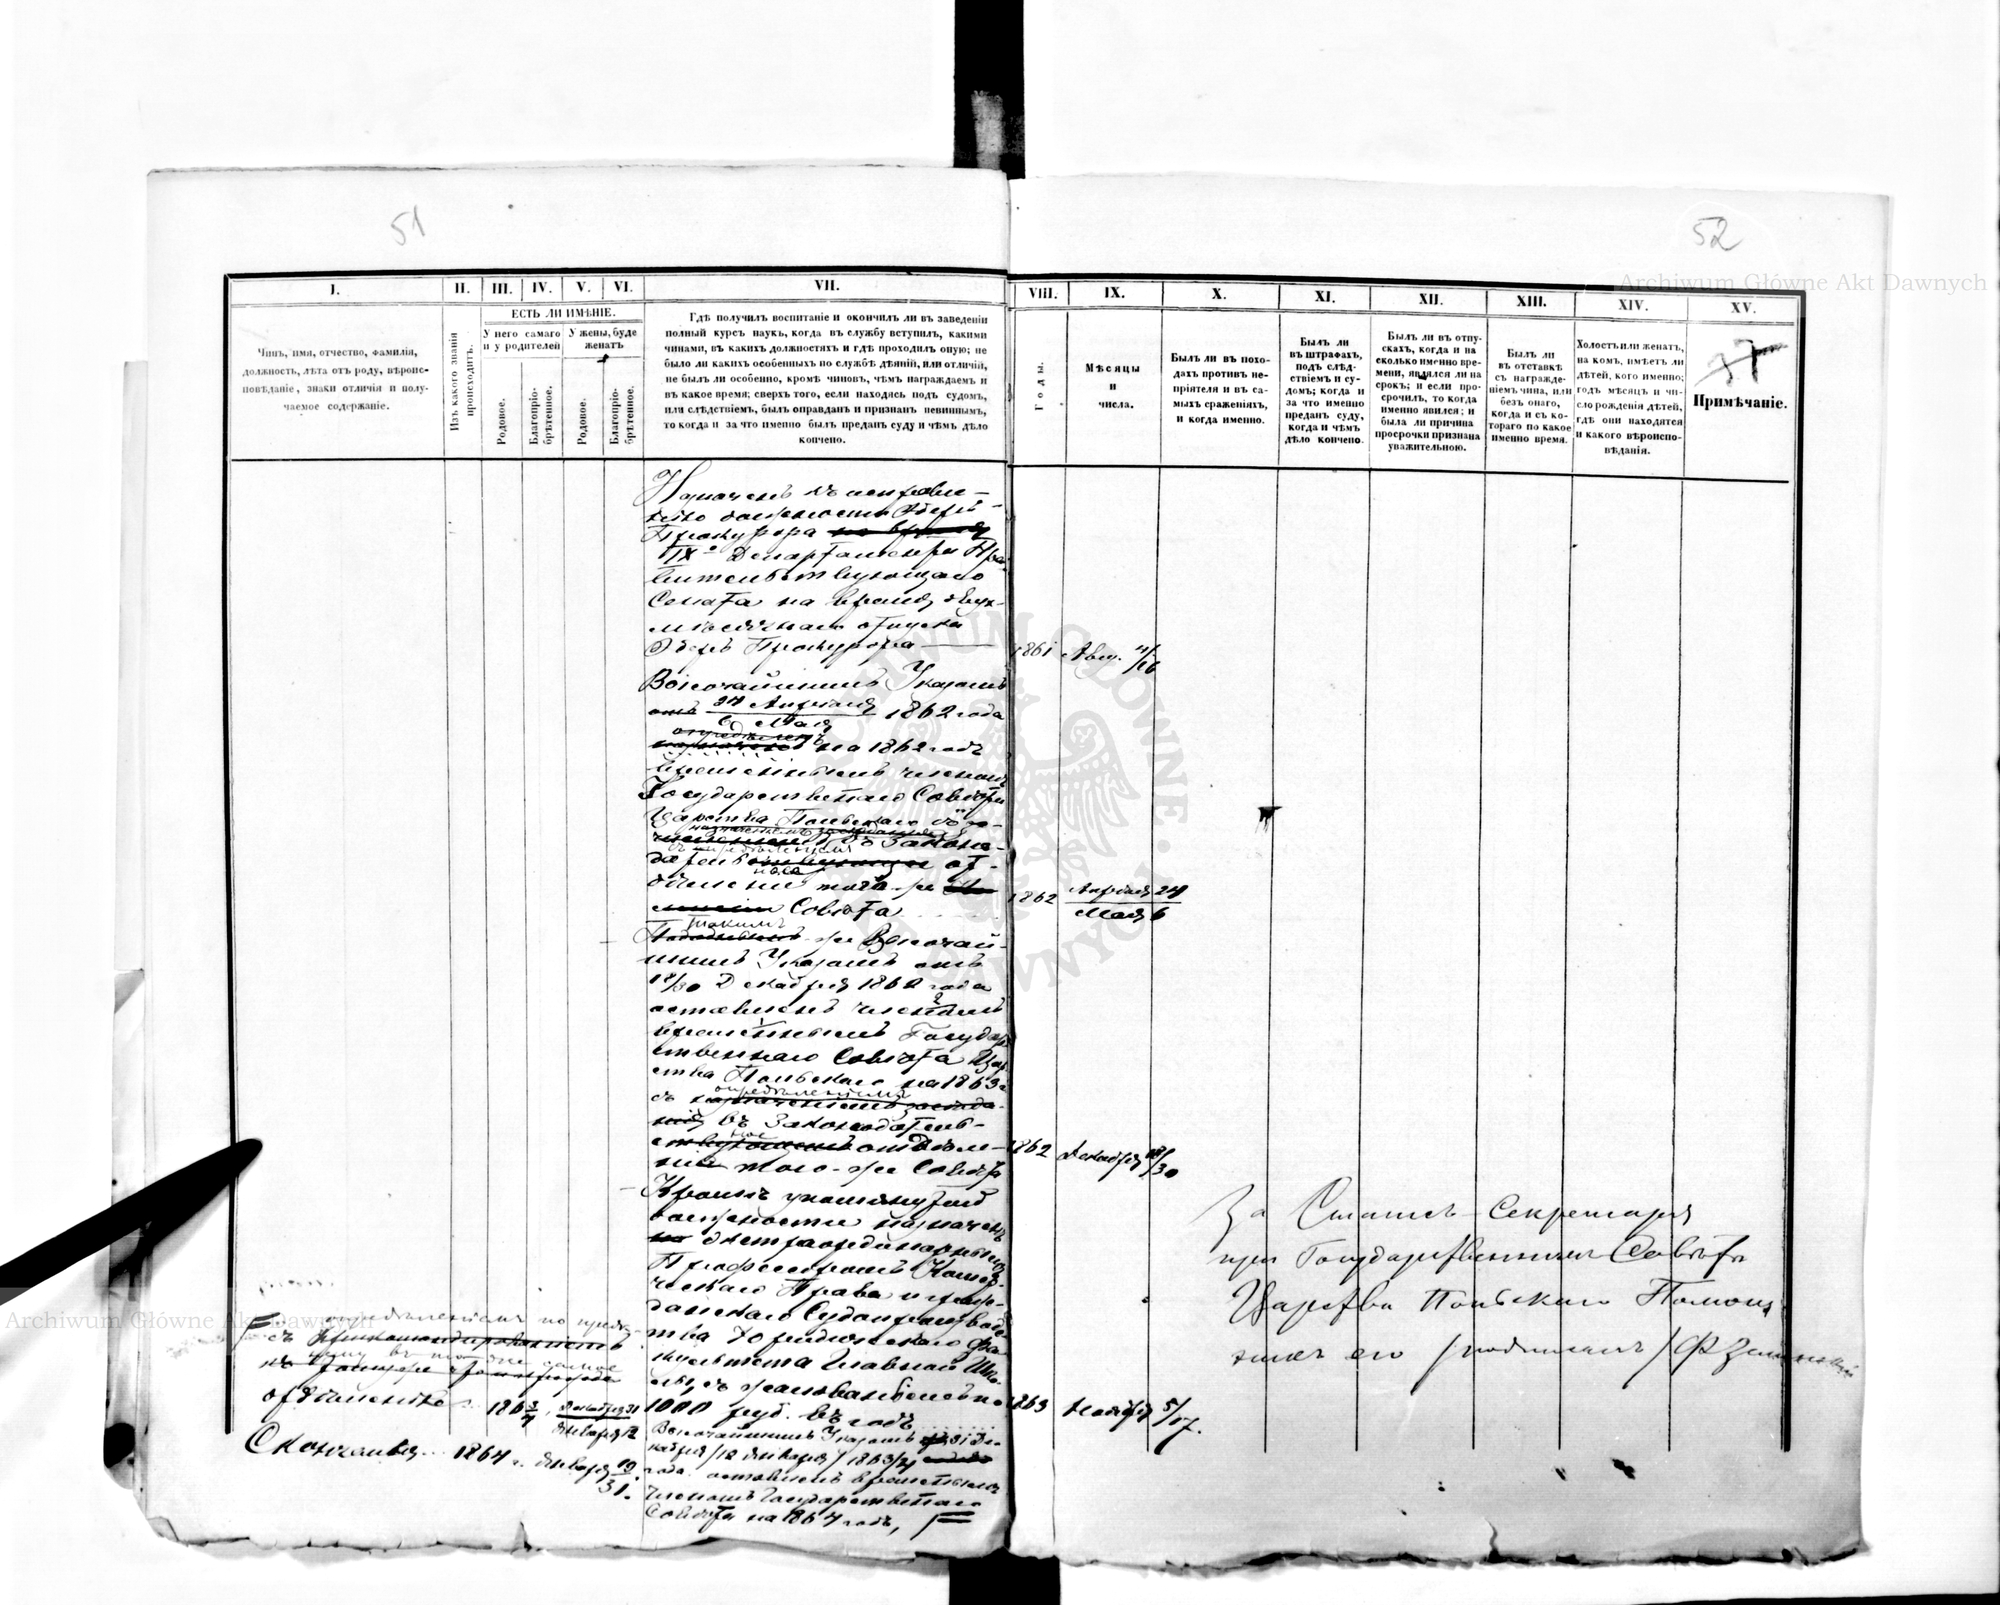 51
52
I.
II.
III.
IV.
V.
VI.
VII.
VIII.
IX.
X.
XI.
XII.
XIII.
XIV.
XV.
Чинъ, имя, отчество, фамилія,
должность, лѣта отъ роду, вѣроис-
повѣданіе, знаки отличія и полу-
чаемое содержаніе.
Изъ какого званія
происходитъ.
ЕСТЬ ЛИ ИМѢНІЕ.
У него самаго
и у родителей
У жены, буде
женатъ
Родовое.
Благопріо-
брѣтенное.
Родовое.
Благопріо-
брѣтенное.
Гдѣ получилъ воспитаніе и окончилъ ли въ заведеніи
полный курсъ наукъ, когда въ службу вступилъ, какими
чинами, въ какихъ должностяхъ и гдѣ проходилъ оную; не
было ли какихъ особенныхъ по службѣ дѣяній, или отличій,
не былъ ли особенно, кромѣ чиновъ, чѣмъ награждаемъ и
въ какое время; сверхъ того, если находясь подъ судомъ,
или слѣдствіемъ, былъ оправданъ и признанъ невиннымъ,
то когда и за что именно былъ преданъ суду и чѣмъ дѣло
кончено.
Годы.
Мѣсяцы
и
числа.
Былъ ли въ похо-
дахъ противъ не-
пріятеля и въ са-
мыхъ сраженіяхъ,
и когда именно.
Былъ ли
въ штрафахъ,
подъ слѣд-
ствіемъ и су-
домъ; когда и
за что именно
преданъ суду,
когда и чѣмъ
дѣло кончено.
Былъ ли въ отпу-
скахъ, когда и на
сколько именно вре-
мени, явился ли на
срокъ; и если про-
срочилъ, то когда
именно явился; и
была ли причина
просрочки признана
уважительною.
Былъ ли
въ отставкѣ
съ награжде-
ніемъ чина, или
безъ онаго,
когда и съ ко-
тораго по какое
именно время.
Холостъ или женатъ,
на комъ, имѣетъ ли
дѣтей, кого именно;
годъ мѣсяцъ и чи-
сло рожденія дѣтей,
гдѣ они находятся
и какого вѣроиспо-
вѣданія.
37
Примѣчаніе.
Назначенъ къ исправле-
нію должности Оберъ-
Прокурора на время
IXо Департамента Пра-
вительствующаго
Сената на время двух-
мѣсячнаго отпуска
Оберъ Прокурора 1861 Авг. 4/16
Высочайшимъ Указомъ
отъ 24 Апрѣля / 6 Мая 1862 года
опредѣленъ
на 1862 годъ
временнымъ членомъ
Государственнаго Совѣта
Царства Польскаго съ
назначеніемъ засѣданія въ Законо-
съ опредѣленіемъ
от-
дѣленіе того-же
Совѣта 1862 Апрѣля 24 / Мая 6
Такимъ
же Высочай-
шимъ Указомъ отъ
18/30 Декабря 1862 года
оставленъ членомъ
временнымъ Государ-
ственнаго Совѣта Цар-
ства Польскаго на 1863 г.
опредѣленіемъ
съ назначеніемъ засѣда-
нія въ Законодатель-
ное
отдѣле-
ніе того-же Совѣта 1862 Декабря 18/30
Кромѣ упомянутой
должности назначенъ
экстраординарнымъ
Профессоромъ Коммер-
ческаго Права и граж-
данскаго Судопроизвод-
ства Юридическаго Фа-
культета Главной Шко-
лы, съ жалованьемъ по
1000 руб. въ годъ 1863 Ноября 5/17.
Высочайшимъ Указомъ 31 Де-
кабря /12 Января/ 1863/4
года оставленъ временнымъ
членомъ Государственнаго
Совѣта на 1864 годъ,
съ опредѣленіемъ по преж-
нему въ
отдѣленіе 1863/4 Декабря 31 / Января 12
Скончался 1864 г. Января 19/31.
За Статсъ-Секретаря
при Государственномъ Совѣтѣ
Царства Польскаго Помощ-
никъ его /подписалъ/
Archiwum Główne Akt Dawnych
Archiwum Główne Akt Dawnych
ARCHIWUM GŁÓWNE AKT DAWNYCH